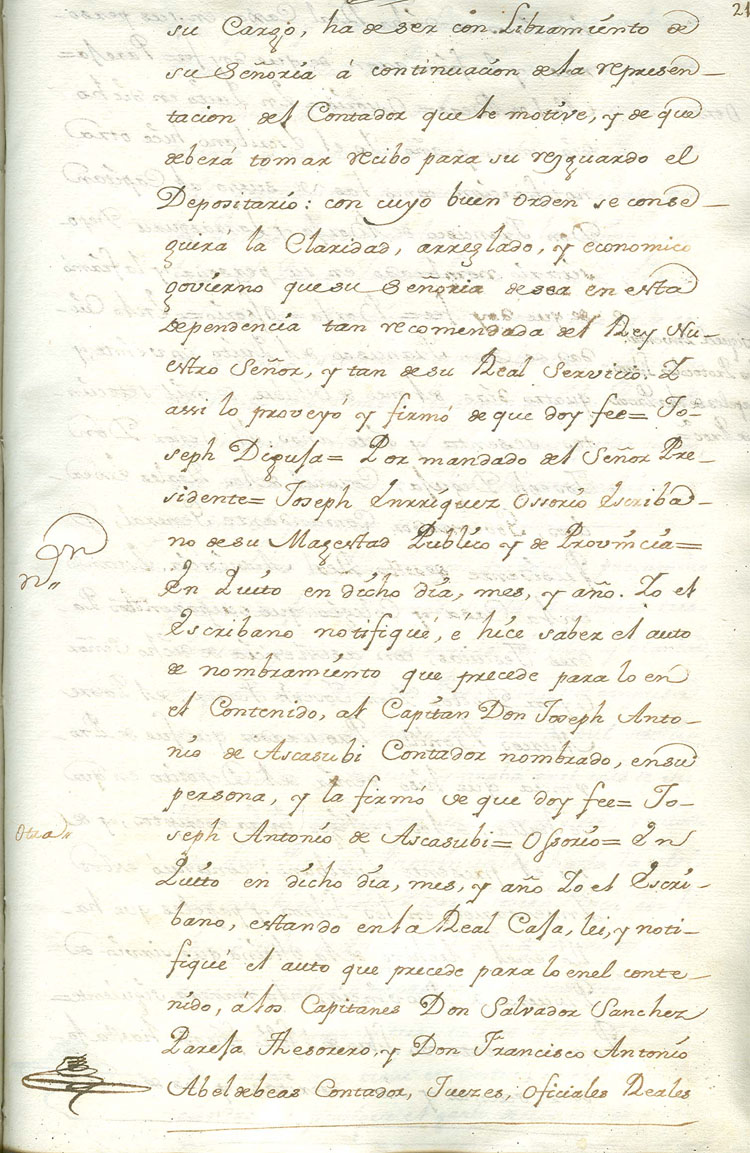 21
su Cargo, ha de ser con Libramiento de
su Señoria á continuacion de la represen-
tacion del Contador que le motive, y de que
deberá tomar recibo para su resguardo el
Depositario: con cuyo buen orden se conse-
guirá la Claridad, arreglado, y economico
govierno que su Señoria desea en esta
dependencia tan recomendada del Rey Nu-
estro Señor, y tan de su Real Servicio. Y
assi lo proveyó y firmó de que doy fee= Jo-
seph Diguja= Por mandado del Señor Pre-
sidente= Joseph Enrriquez Ossorio Escriba-
no de su Magestad Publico y de Provincia=
En Quito en dicho dia, mes, y año. Yo el
Escribano notifiqué, é hice saber el auto
de nombramiento que precede para lo en
el Contenido, al Capitan Don Joseph Anto-
nio de Ascasubi Contador nombrado, en su
persona, y la firmó de que doy fee= Jo-
Otra,,
seph Antonio de Ascasubi= Ossorio= En
Quito en dicho dia, mes, y año Yo el Escri-
bano, estando en la Real Casa, lei, y noti-
fiqué el auto que precede para lo en el conte-
nido, á los Capitanes Don Salvador Sanchez
Pareja Thesorero, y Don Francisco Antonio
Abeldebeas Contador, Juezes, Oficiales Reales